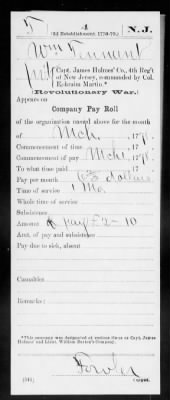 5 4 N.J.
(2d Establishment, 1776-79.)
Wm Tennant
Capt. James Holmes' Co., 4th Reg't
of New Jersey, commanded by Col.
Ephraim Martin.*
(Revolutionary War.)
Appears on
Company Pay Roll
of the organization named above for the month
of Mch, 1778.
Commencement of time, 17 .
Commencement of pay, 1778.
To what time paid, 17 .
Pay per month 6 2/3 dollars
Time of service 1 Mo.
Whole time of service
Subsistence
Amount pay £2-10
Amt. of pay and subsistence
Pay due to sick, absent
Casualties
Remarks:
*This company was designated at various times as Capt. James
Holmes' and Lieut. William Barton's Company.
Fowler
(545) Copyist.